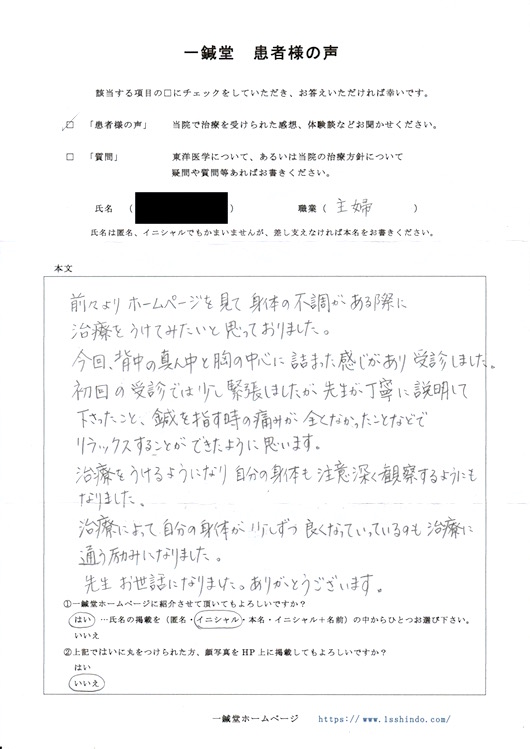 一鍼堂 患者様の声
該当する項目の□にチェックをしていただき、お答えいただければ幸いです。
□ 「患者様の声」 当院で治療を受けられた感想、体験談などお聞かせください。
□ 「質問」 東洋医学について、あるいは当院の治療方針について
疑問や質問等あればお書きください。
氏名 ( ) 職業 ( 主婦 )
氏名は匿名、イニシャルでもかまいませんが、差し支えなければ本名をお書きください。
本文
前々より ホームページを見て 身体の不調がある際に
治療をうけてみたいと思っておりました。
今回、背中の真ん中と胸の中心に詰まった感じがあり 受診しました。
初回の受診では少し緊張しましたが 先生が丁寧に説明して
下さったこと、鍼を指す時の痛みが 全くなかったことなどで
リラックスすることが できたように思います。
治療をうけるようになり 自分の身体も 注意深く観察するようにも
なりました。
治療によって自分の身体が 少しずつ 良くなっていっているのも 治療に
通う励みになりました。
先生 お世話になりました。ありがとうございます。
①一鍼堂ホームページに紹介させて頂いてもよろしいですか?
はい …氏名の掲載を (匿名・イニシャル・本名・イニシャル+名前) の中からひとつお選び下さい。
いいえ
②上記ではいに丸をつけられた方、顔写真を HP 上に掲載してもよろしいですか?
はい
いいえ
一鍼堂ホームページ https://www.1sshindo.com/